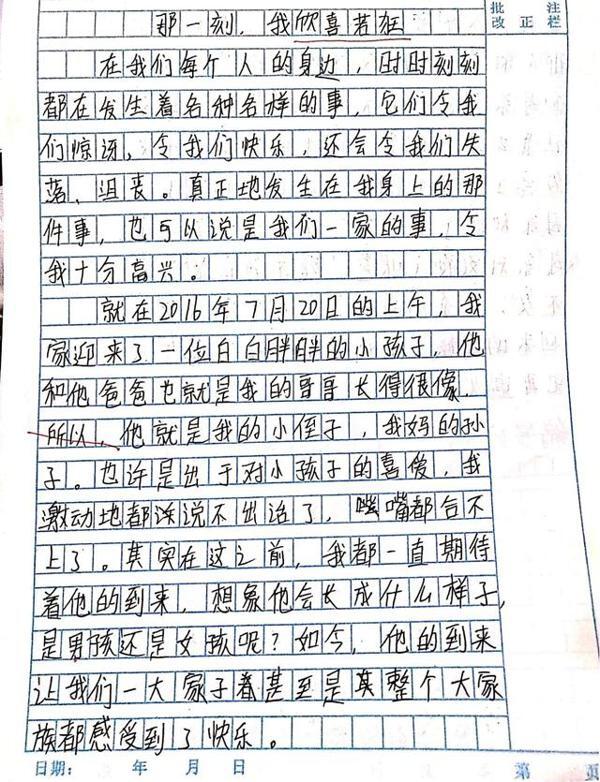 批 注
改 正 栏
那一刻，我欣喜若狂
在我们每个人的身边，时时刻刻
都在发生着各种各样的事，它们令我
们惊讶，令我们快乐，还会令我们失
落、沮丧。真正地发生在我身上的那
件事，也可以说是我们一家的事，令
我十分高兴。
就在2016年7月20日的上午，我
家迎来了一位白白胖胖的小孩子，他
和他爸爸也就是我的哥哥长得很像，
所以，他就是我的小侄子，我妈的孙
子。也许是出于对小孩子的喜爱，我
激动地都说不出话了，嘴都合不
上了。其实在这之前，我都一直期待
着他的到来，想象他会长成什么样子，
是男孩还是女孩呢？如今，他的到来
让我们一大家子甚至是整个大家
族都感受到了快乐。
日期： 年 月 日 第 页